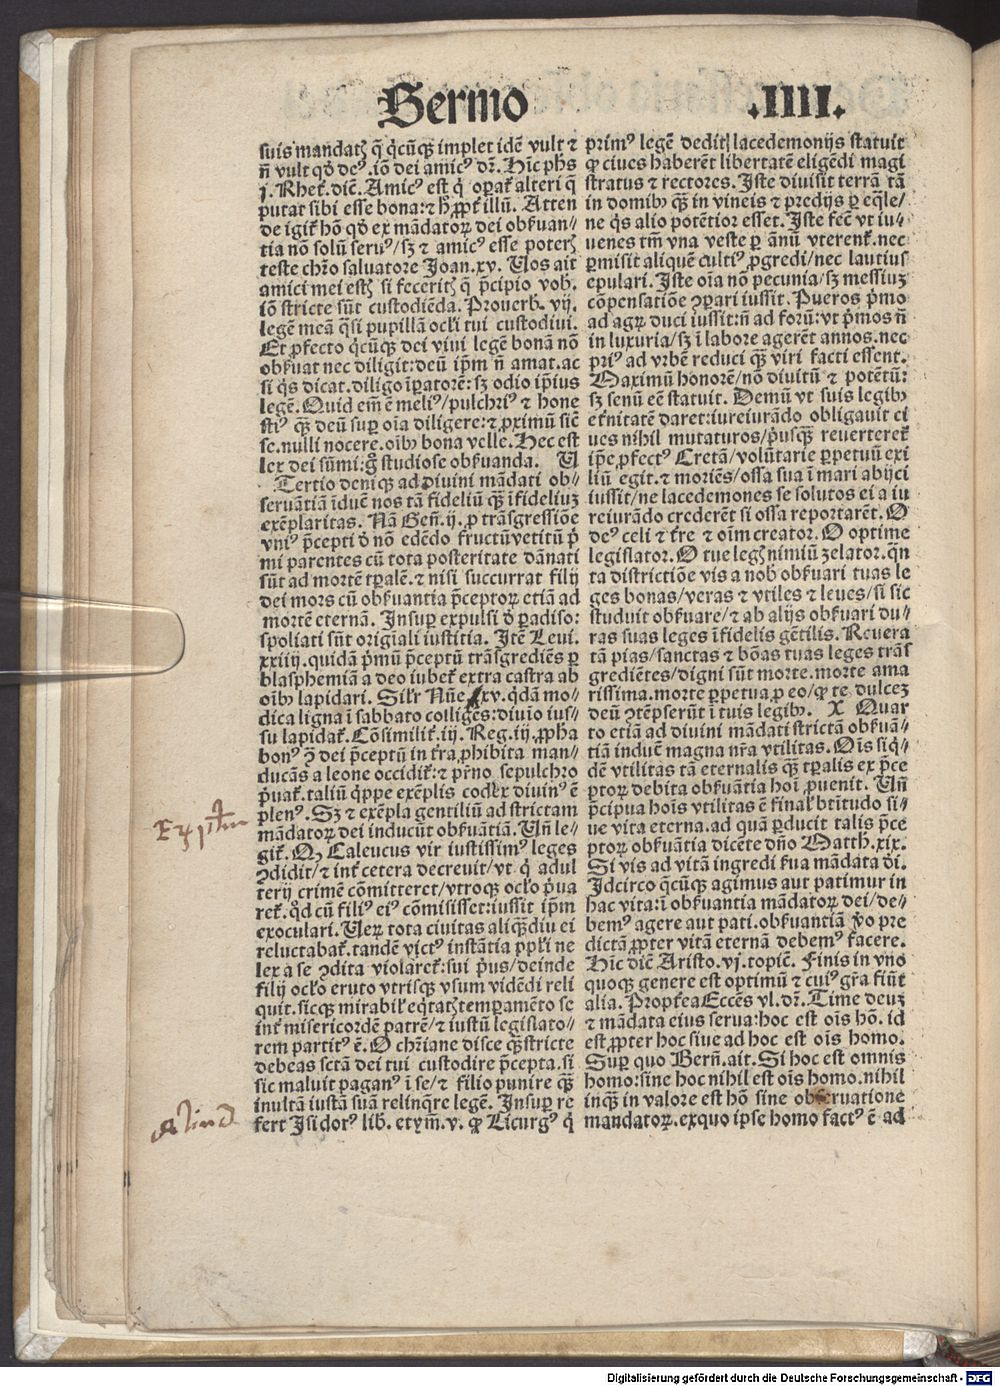 Sermo .IIII.
suis mandatꝭ q̃ qͥcūqꝫ implet idē vult ⁊
nͫ vult qđ deꝰ. iō dei amicꝰ dr̄. Hīc phs
j. Rhet̄. diē. Amicꝰ est qͥ optat̄ alteri q̄
putat sibi esse bona: ⁊ hͦ ꝓpt̄ illū. Atten
de igit̄ hō qđ ex mādatoꝝ dei obẜuan⸗
tia nō solū seruꝰ/sꝫ ⁊ amicꝰ esse poterꝭ
teste chr̄o saluatore Joan. xv. Uos ait
amici mei estꝭ si feceritꝭ q̄ p̄cipio vob̄.
iō stricte sūt custodiēda. Prouerb̄. vij.
legē meā q̄si pupillā ocl̄i tui custodiui.
Et ꝓfecto qͥcūqꝫ dei viui legē bonā nō
obẜuat nec diligit: deū ip̄m nō amat. ac
si qͥs dicat. diligo īꝑatorē: sꝫ odio ip̄ius
legē. Quid em̄ ē meliꝰ/pulchriꝰ ⁊ hone
stiꝰ qꝫ deū suꝑ oīa diligere: ⁊ ꝓximū sic̄
se. nulli nocere. oībꝰ bona velle. Hec est
lex dei sūmi: gͦ studiose obẜuanda. U
Tertio deniqꝫ ad diuini mādati ob⸗
seruātiā īduc̄ nos tā fideliū qꝫ īfideliuꝫ
exēplaritas. Nā Gen̄. ij. ꝓ trāsgressiōe
vniꝰ p̄cepti đ nō edēdo fructū vetitū pͥ
mi parentes cū tota posteritate dānati
sūt ad mortē tꝑalē. ⁊ nisi succurrat filij
dei mors cū obẜuantia p̄ceptoꝝ etiā ad
mortē eternā. Insuꝑ expulsi đ paradiso:
spoliati sūt origīali iustitia. Itē Leui.
xxiiij. quidā pͥmū p̄ceptū trāsgrediēs ꝑ
blasphemiā a deo iubet̄ extra castra ab
oībꝰ lapidari. Silr̄ Nūe. xv. qͥdā mo⸗
dica ligna ī sabbato colligēs: diuīo ius⸗
su lapidat̄. Cōsimilit̄. iij. Reg. iij. ꝓpha
bonꝰ ꝯͣ dei p̄ceptū in t̄ra ꝓhibita man⸗
ducās a leone occidit̄: ⁊ pr̄no sepulchro
pͥuat̄. taliū qͥppe exēplis codex diuinꝰ ē
plenꝰ. Sꝫ ⁊ exēpla gentiliū ad strictam
mādatoꝝ dei inducūt obẜuātiā. Un̄ le⸗
git̄. Qꝫ Caleucus vir iustissimꝰ leges
ꝯdidit/⁊ int̄ cetera decreuit/vt qͥ adul
terij crimē cōmitteret/vtroqꝫ ocl̄o pͥua
ret̄. qđ cū filiꝰ eiꝰ cōmisisset: iussit ip̄m
exoculari. Ueꝝ tota ciuitas aliqͣdiu ei
reluctabat̄. tandē victꝰ instātia ppl̄i ne
lex a se ꝯdita violaret̄: sui pͥus/deinde
filij ocl̄o eruto vtrisqꝫ vsum vidēdi reli
quit. sicqꝫ mirabil̄ eq̄tatꝭ temꝑamēto se
int̄ misericordē patrē/⁊ iustū legislato⸗
rem partitꝰ ē. O chr̄iane disce qꝫ stricte
debeas sctā dei tui custodire p̄cepta. si
sic maluit paganꝰ ī se/⁊ filio punire qꝫ
inultā iustā suā relinq̄re legē. Insuꝑ re
fert Isidorꝰ lib̄. etym̄. v. ꝙ Licurgꝰ qͥ
primꝰ legē dedit lacedemonijs statuit
ꝙ ciues haberēt libertatē eligēdi magi
stratus ⁊ rectores. Iste diuisit terrā tā
in domibꝰ qꝫ in vineis ⁊ predijs ꝑ eq̄le/
ne qͥs alio potētior esset. Iste fec̄ vt iu⸗
uenes tm̄ vna veste ꝑ annū vterent̄. nec
ꝑmisit aliquē cultiꝰ ꝓgredi/nec lautius
epulari. Iste oīa nō pecunia/sꝫ messiuꝫ
cōpensatiōe ꝯꝑari iussit. Pueros pͥmo
ad agrū duci iussit: nͫ ad forū: vt pͥmos nͫ
in luxuria/sꝫ ī labore agerēt annos. nec
priꝰ ad vrbē reduci qꝫ viri facti essent.
Maximū honorē/nō diuitū ⁊ potētū:
sꝫ senū eē statuit. Demū vt suis legibꝰ
et̄nitatē daret: iureiurādo obligauit ci
ues nihil mutaturos/pͥusqꝫ reuerteret̄
ip̄e, ꝓfectꝰ Cretā/volūtarie ꝑpetuū exi
liū egit. ⁊ moriēs/ossa sua ī mari abijci
iussit/ne lacedemones se solutos ei a iu
reiurādo crederēt si ossa reportarēt. O
deꝰ celi ⁊ t̄re ⁊ oīm creator. O optime
legislator. O tue legꝭ nimiū zelator. qͣn
ta districtiōe vis a nob̄ obẜuari tuas le
ges bonas/veras ⁊ vtiles ⁊ leues/si sic
studuit obẜuare/⁊ ab alijs obẜuari du⸗
ras suas leges īfidelis gētilis. Reuera
tā pias/sanctas ⁊ bōas tuas leges trās
grediētes/digni sūt morte. morte ama
rissima. morte ꝑpetua. ꝓ eo/ꝙ te dulceꝫ
deū ꝯtēpserūt ī tuis legibꝰ. X Quar
to etiā ad diuini mādati strictā obẜuā⸗
tiā induc̄ magna nr̄a vtilitas. Oīs siqͥ⸗
dē vtilitas tā eternalis qꝫ tꝑalis ex p̄ce
ptoꝝ debita obẜuātia hoī ꝓuenit. Un̄
p̄cipua hoīs vtilitas ē finalꝭ btītudo si⸗
ue vita eterna. ad quā ꝑducit talis p̄ce
ptoꝝ obẜuātia dicēte dn̄o Matth. xix.
Si vis ad vitā ingredi ẜua mādata đi.
Idcirco qͥcūqꝫ agimus aut patimur in
hac vita: ī obẜuātia mādatoꝝ dei/de⸗
bemꝰ agere aut pati. obẜuantiā ꝟo pre
dictā ꝓpter vitā eternā debemꝰ facere.
Hīc diē Aristo. vj. topic̄. Finis in vno
quoqꝫ genere est optimū ⁊ cuiꝰ gr̄a fiūt
alia. Propt̄ea Ecces̄ vl. dr̄. Time deuꝫ
⁊ mādata eius serua: hoc est oīs hō. id
est ꝓpter hoc siue ad hoc est oīs homo.
Suꝑ quo Bern̄. ait. Si hoc est omnis
homo: sine hoc nihil est oīs homo. nihil
inqͣ in valore est hō sine obseruatione
mandatoꝝ. exquo ipse homo factꝰ ē ad
Digitalisierung gefördert durch die Deutsche Forschungsgemeinschaft - DFG